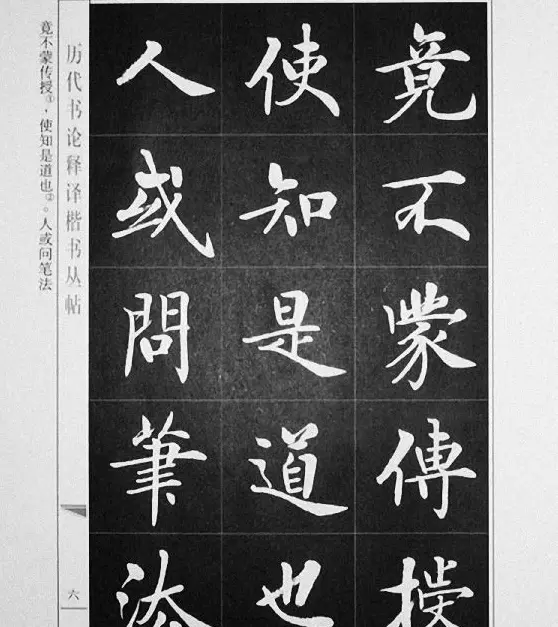 竟不蒙傳授
使知是道也
人或問筆法
历代书论释译楷书丛帖
六
竟不蒙传授①，使知是道也②。人或问笔法